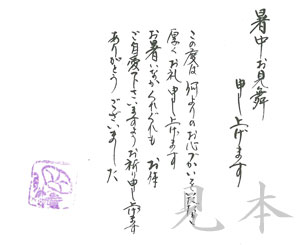 暑中お見舞
申し上げます
この度は何よりのお心づかいをいただき
厚くお礼申し上げます
お暑いなかくれぐれも お体
ご自愛下さいますようお祈り申し上げます
ありがとうございました
見本